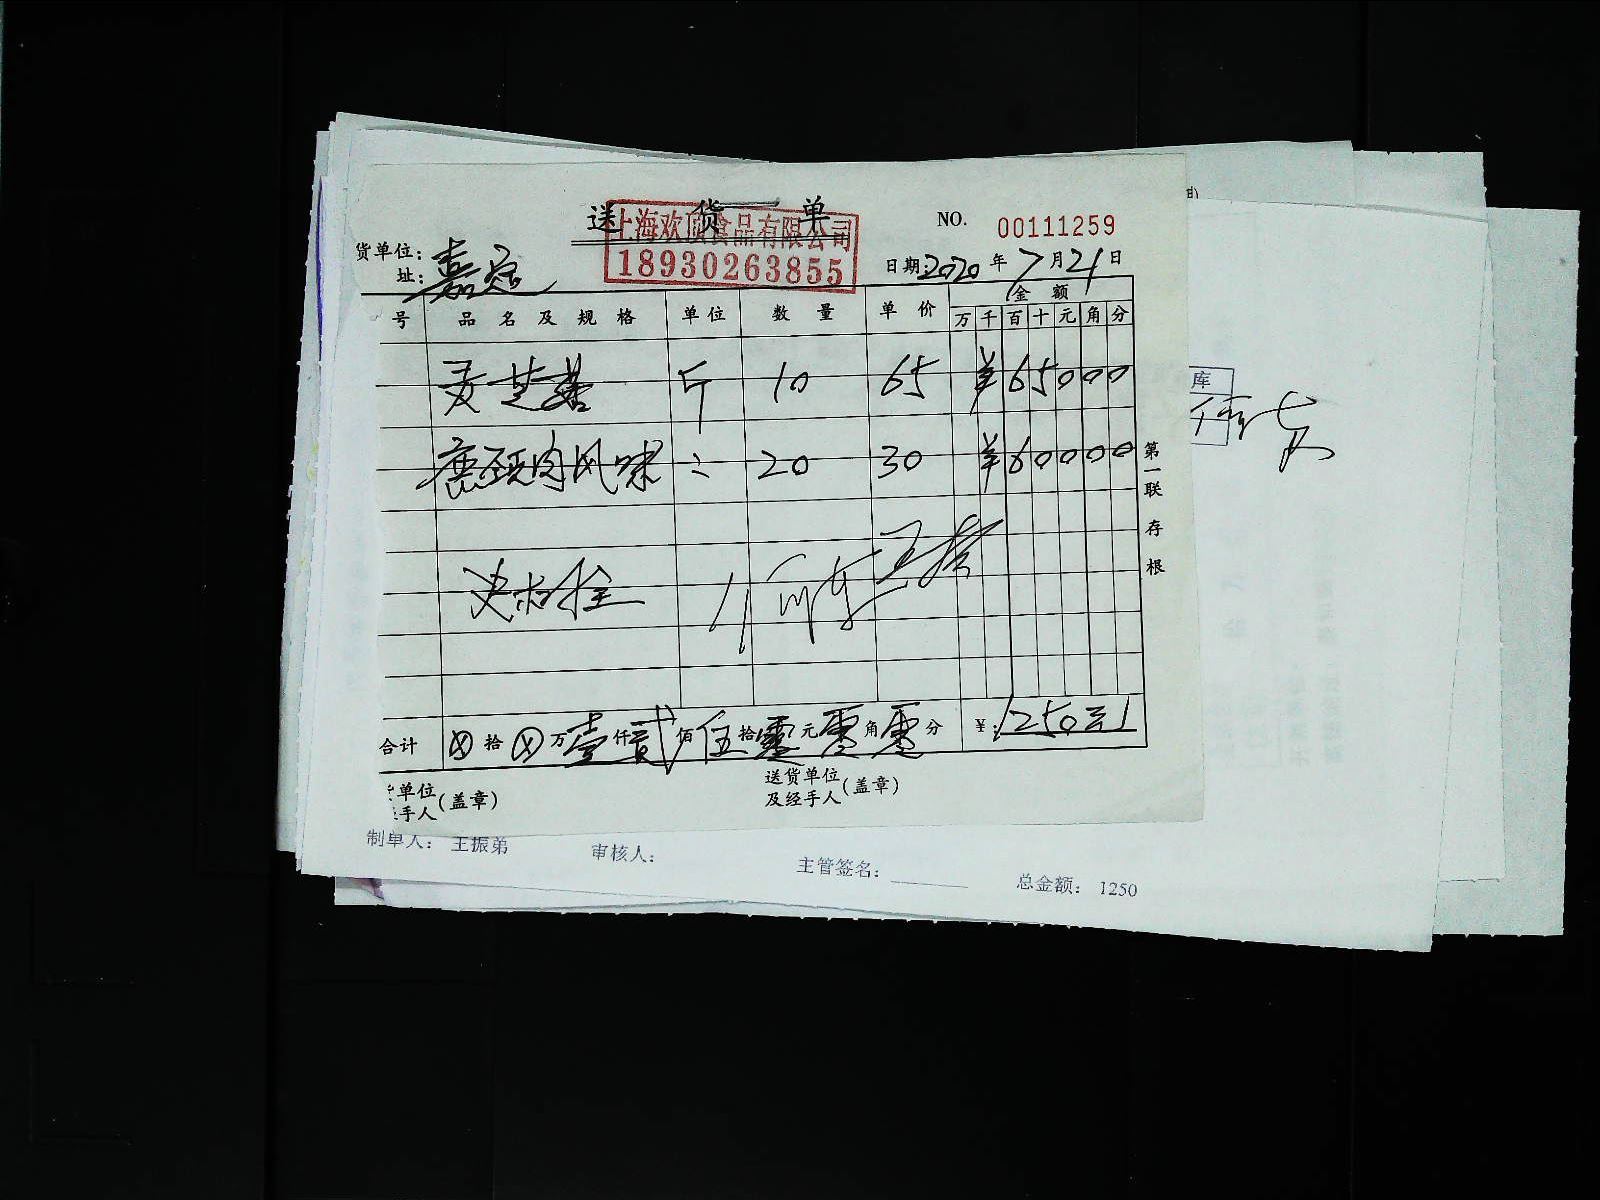 送货单
上海欢顶食品有限公司
18930263855
NO. 00111259
货单位:
址: 嘉定
日期: 2020年7月21日
号 品名及规格 单位 数量 单价 金额
万 千 百 十 元 角 分
斤 10 65 ¥65000
鹿颈肉风味 〃 20 30 ¥60000
合计 ⊗拾⊗万壹仟贰佰伍拾零元零角零分 ¥:1250元
第一联 存根
单位
手人(盖章)
送货单位
及经手人(盖章)
库
制单人: 王振弟 审核人: 主管签名: 总金额: 1250